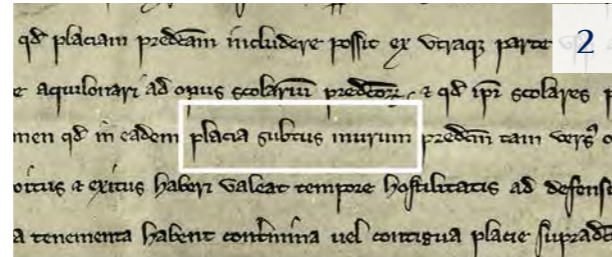 qd placiam predcam includere possit ex utraq parte
2
aquilonari ad opus scolariu predcor & qd ipi scolares
men qd in eadem placia subtus murum predcm tam vers
oitus & exitus haberi valeat tempore hostilitatis ad defens
a tenementa habent contermina uel contigua placie supradc